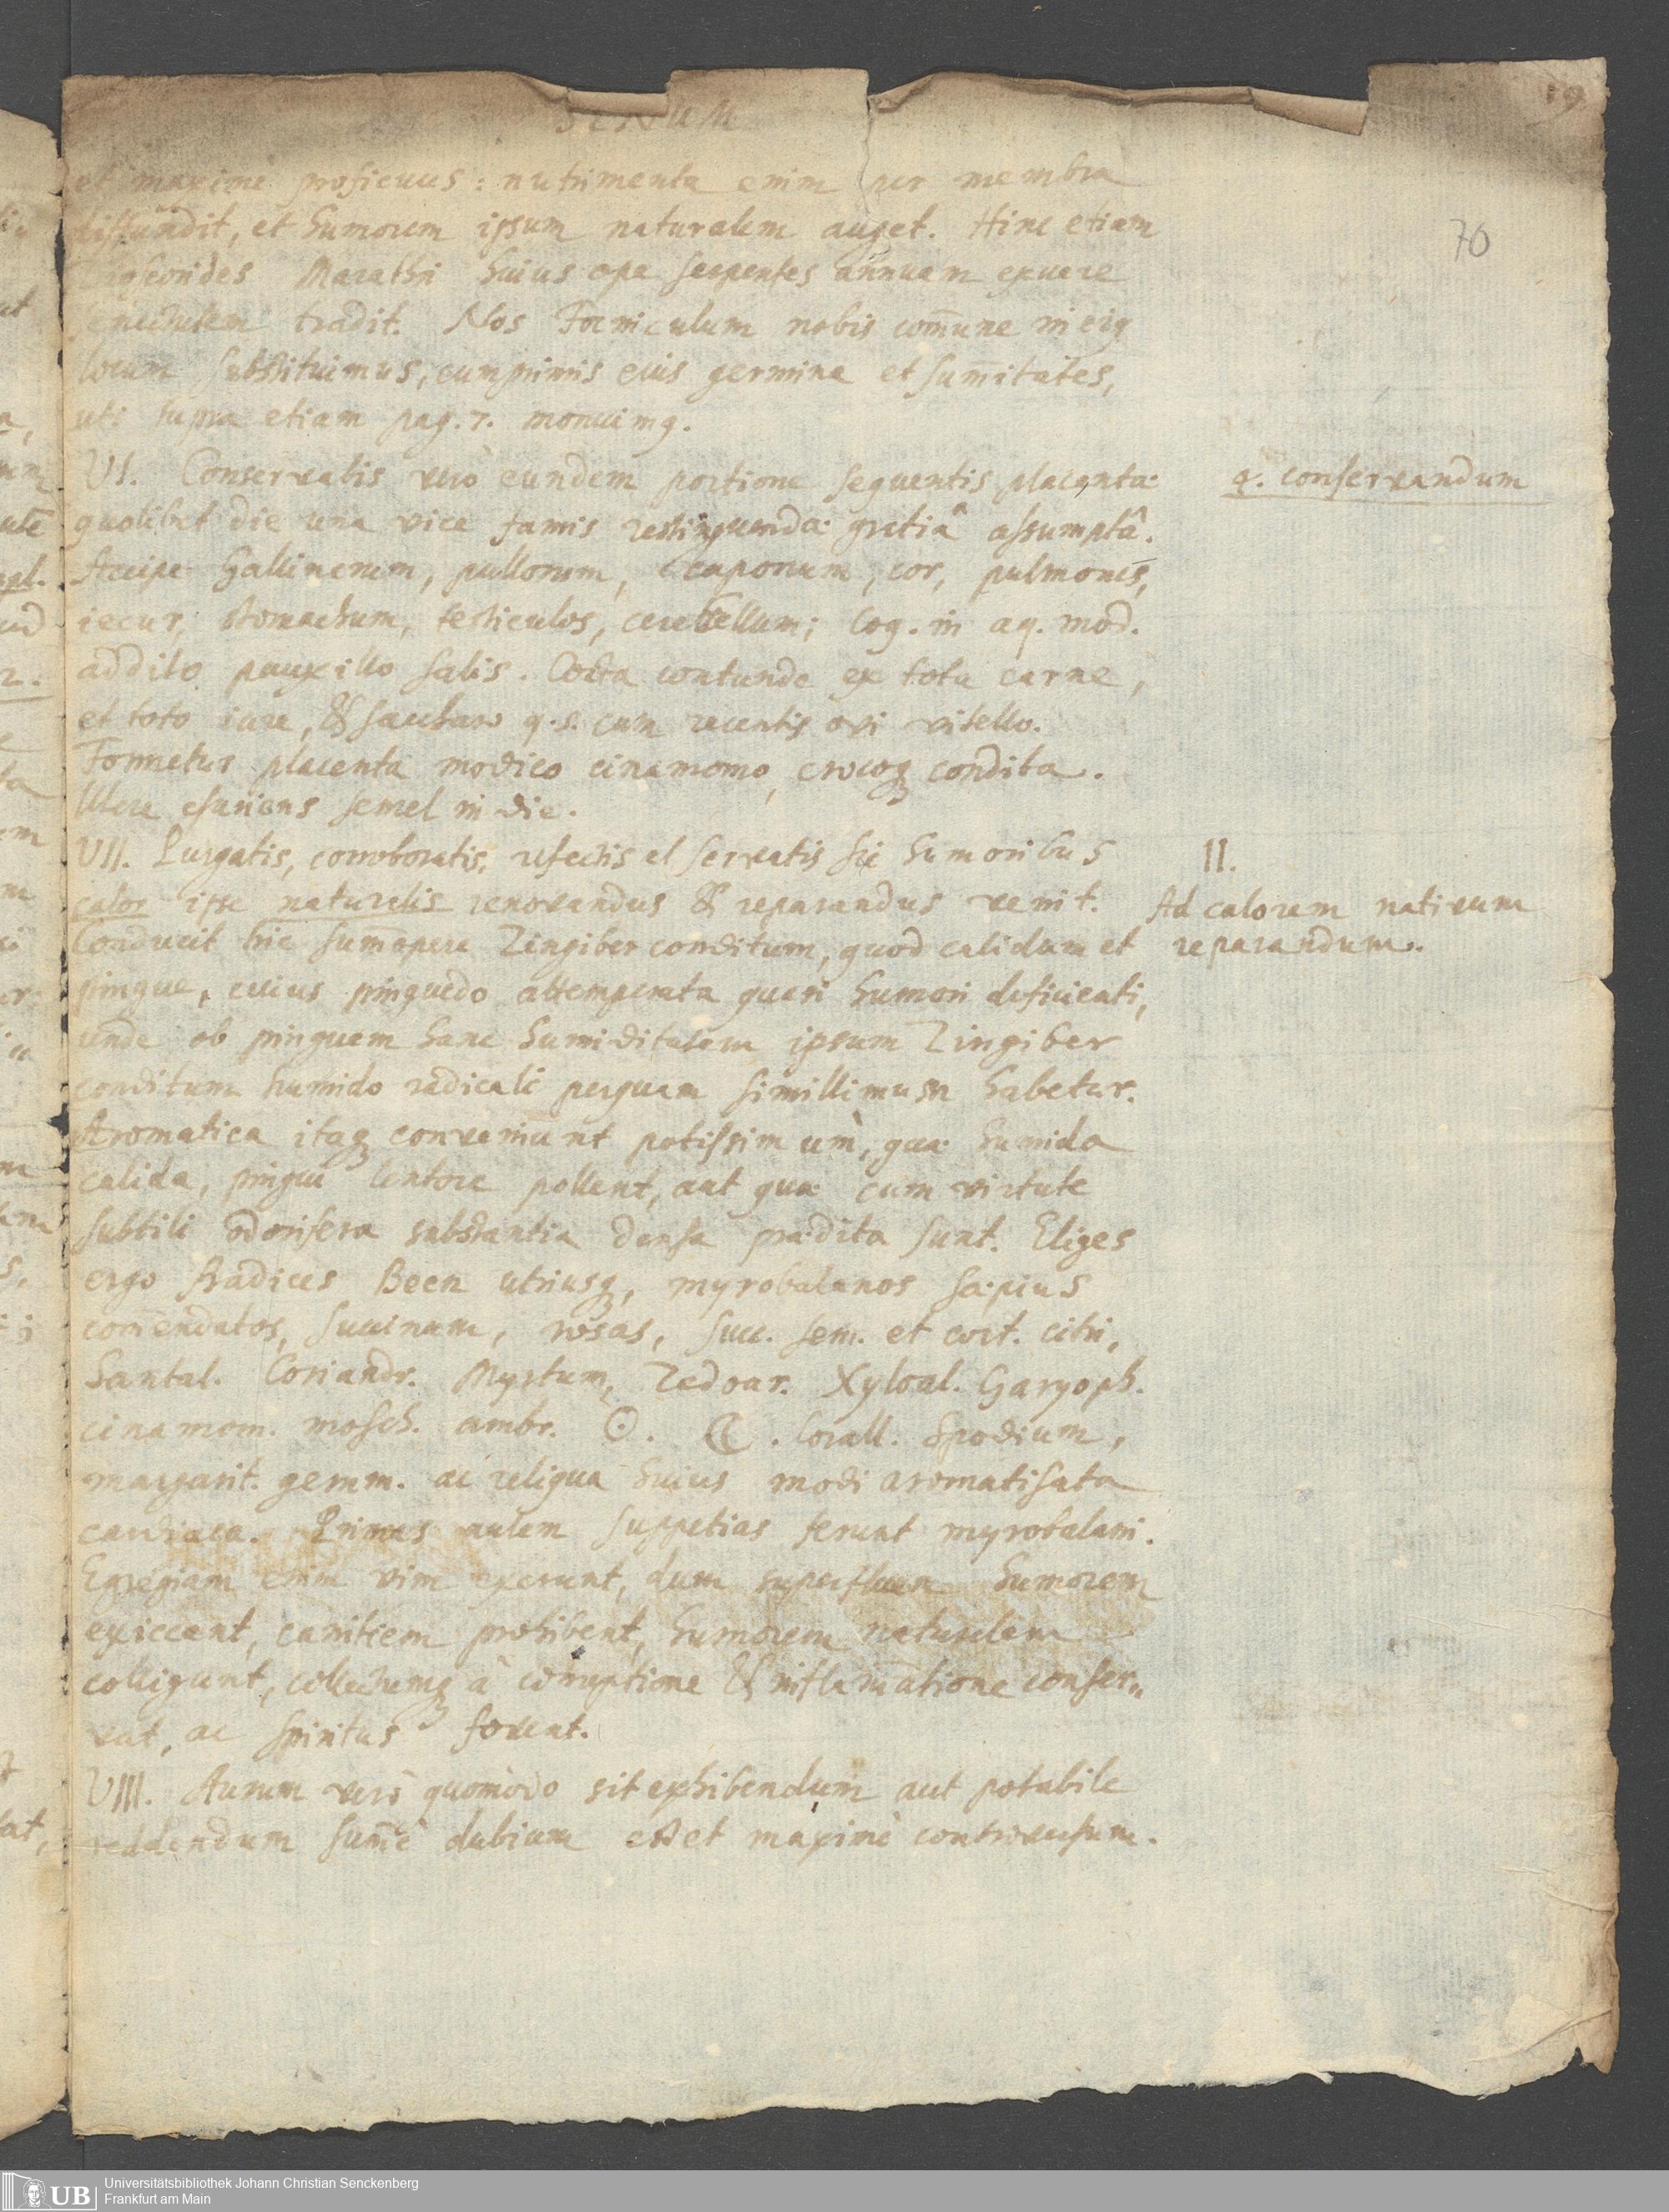 SENUM
19
70
et maximè proficuus: nutrimenta enim per membra
diffundit, et humorem ipsum naturalem auget. Hinc etiam
Marathri huius ope serpentes annuam exuere
senectutem tradit. Nos Foeniculum nobis com̃une in eiꝰ
locum substituimus, cumprimis eius germina et sum̃itates,
uti supra etiam pag. 7. monuimꝰ.
VI. Conservabis verò eundem portione sequentis placentæ
quolibet die una vice famis restinguendæ gratiâ assumptâ.
Accipe Gallinarum, pullorum, caponum, cor, pulmones,
iecur, stomachum, testiculos, cerebellum; Coq. in aq. mod.
addito pauxillo salis. Cocta contunde ex tota carne,
et toto iure, & saccharo q.s. cum recentis ovi vitello.
Formetur placenta modico cinamomo, crocoq; condita.
Utere esuriens semel in die.
4. conservandum
VII. Purgatis, corroboratis, refectis et servatis sic humoribus
calor ipse naturalis renovandus & reparandus venit.
Conducit hic sum̃opere Zingiber conditum, quod calidum et
pingue, cuius pinguedo attemperata quasi humori deficienti,
unde ob pinguem hanc humiditatem ipsum Zingiber
conditum humido radicali perquam simillimum habetur.
Aromatica itaq; conveniunt potissimùm, quæ humida
calida, pingui lentore pollent, aut quæ cum virtute
subtili odorifera substantia densa prædita sunt. Eliges
ergo Radices Been utriusq;, myrobalanos sæpius
com̃endatos, succinum, rosas, succ. sem. et cort. citri,
Santal. Coriandr. Myrtum, Zedoar. Xyloal. Garyoph.
cinamom. mosch. ambr. ☉. ☾. Corall. Spodium,
margarit. gemm. ac reliqua huius modi aromatisata
cardiaca. Primas autem suppetias ferunt myrobalani.
Egregiam enim vim exerunt, dum superfluum humorem
exiccant, canitiem prohibent, humorem naturalem
colligunt, collectumq; à corruptione & inflam̃atione conser„
vat, ac spiritus fovent.
VIII. Aurum verò quomodo sit exhibendum aut potabile
reddendum sum̃è dubium est et maximè controversum.
II.
Ad calorem nativum
reparandum.
Universitätsbibliothek Johann Christian Senckenberg
Frankfurt am Main
UB